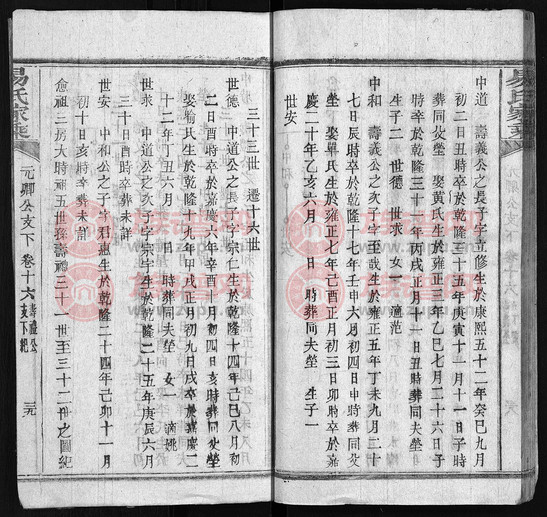 易氏家乘
中道 壽義公之長子字立修生於康熙五十二年癸巳九月
初二日丑時卒於乾隆三十五年庚寅十一月十一日子時
葬同父塋 娶黃氏生於雍正三年乙巳七月二十六日子
時卒於乾隆三十一年丙戌正月十一日丑時葬同夫塋
生子二 世德 世求 女一 適范
中和 壽義公之次子字至 生於雍正五年丁未九月二十
七日辰時卒於乾隆十七年壬申六月初四日申時葬同父
塋 娶單氏生於雍正七年己酉正月初三日卯時卒於嘉
慶二十年乙亥六月 日 時葬同夫塋 生子一
世安
三十三世 遷十六世
世德 中道公之長子字宗仁生於乾隆十四年己巳八月初
二日酉時卒於嘉慶六年辛酉十月初四日亥時葬同父塋
娶喻氏生於乾隆十九年甲戌正月初九日戌時卒於嘉慶二
十二年丁丑六月 時葬同夫塋 女 適姚
世求 中道公之次子字宗 生於乾隆二十五年庚辰六月
三十日酉時卒葬未詳
世安 中和公之子字君惠生於乾隆二十四年己卯十一月
初十日亥時卒葬未詳
愈祖三房大時禎五世孫壽禮三十一世至三十二世之圖紀
易氏家乘
元卿公支下 卷十六 壽禮公支下紀
三九